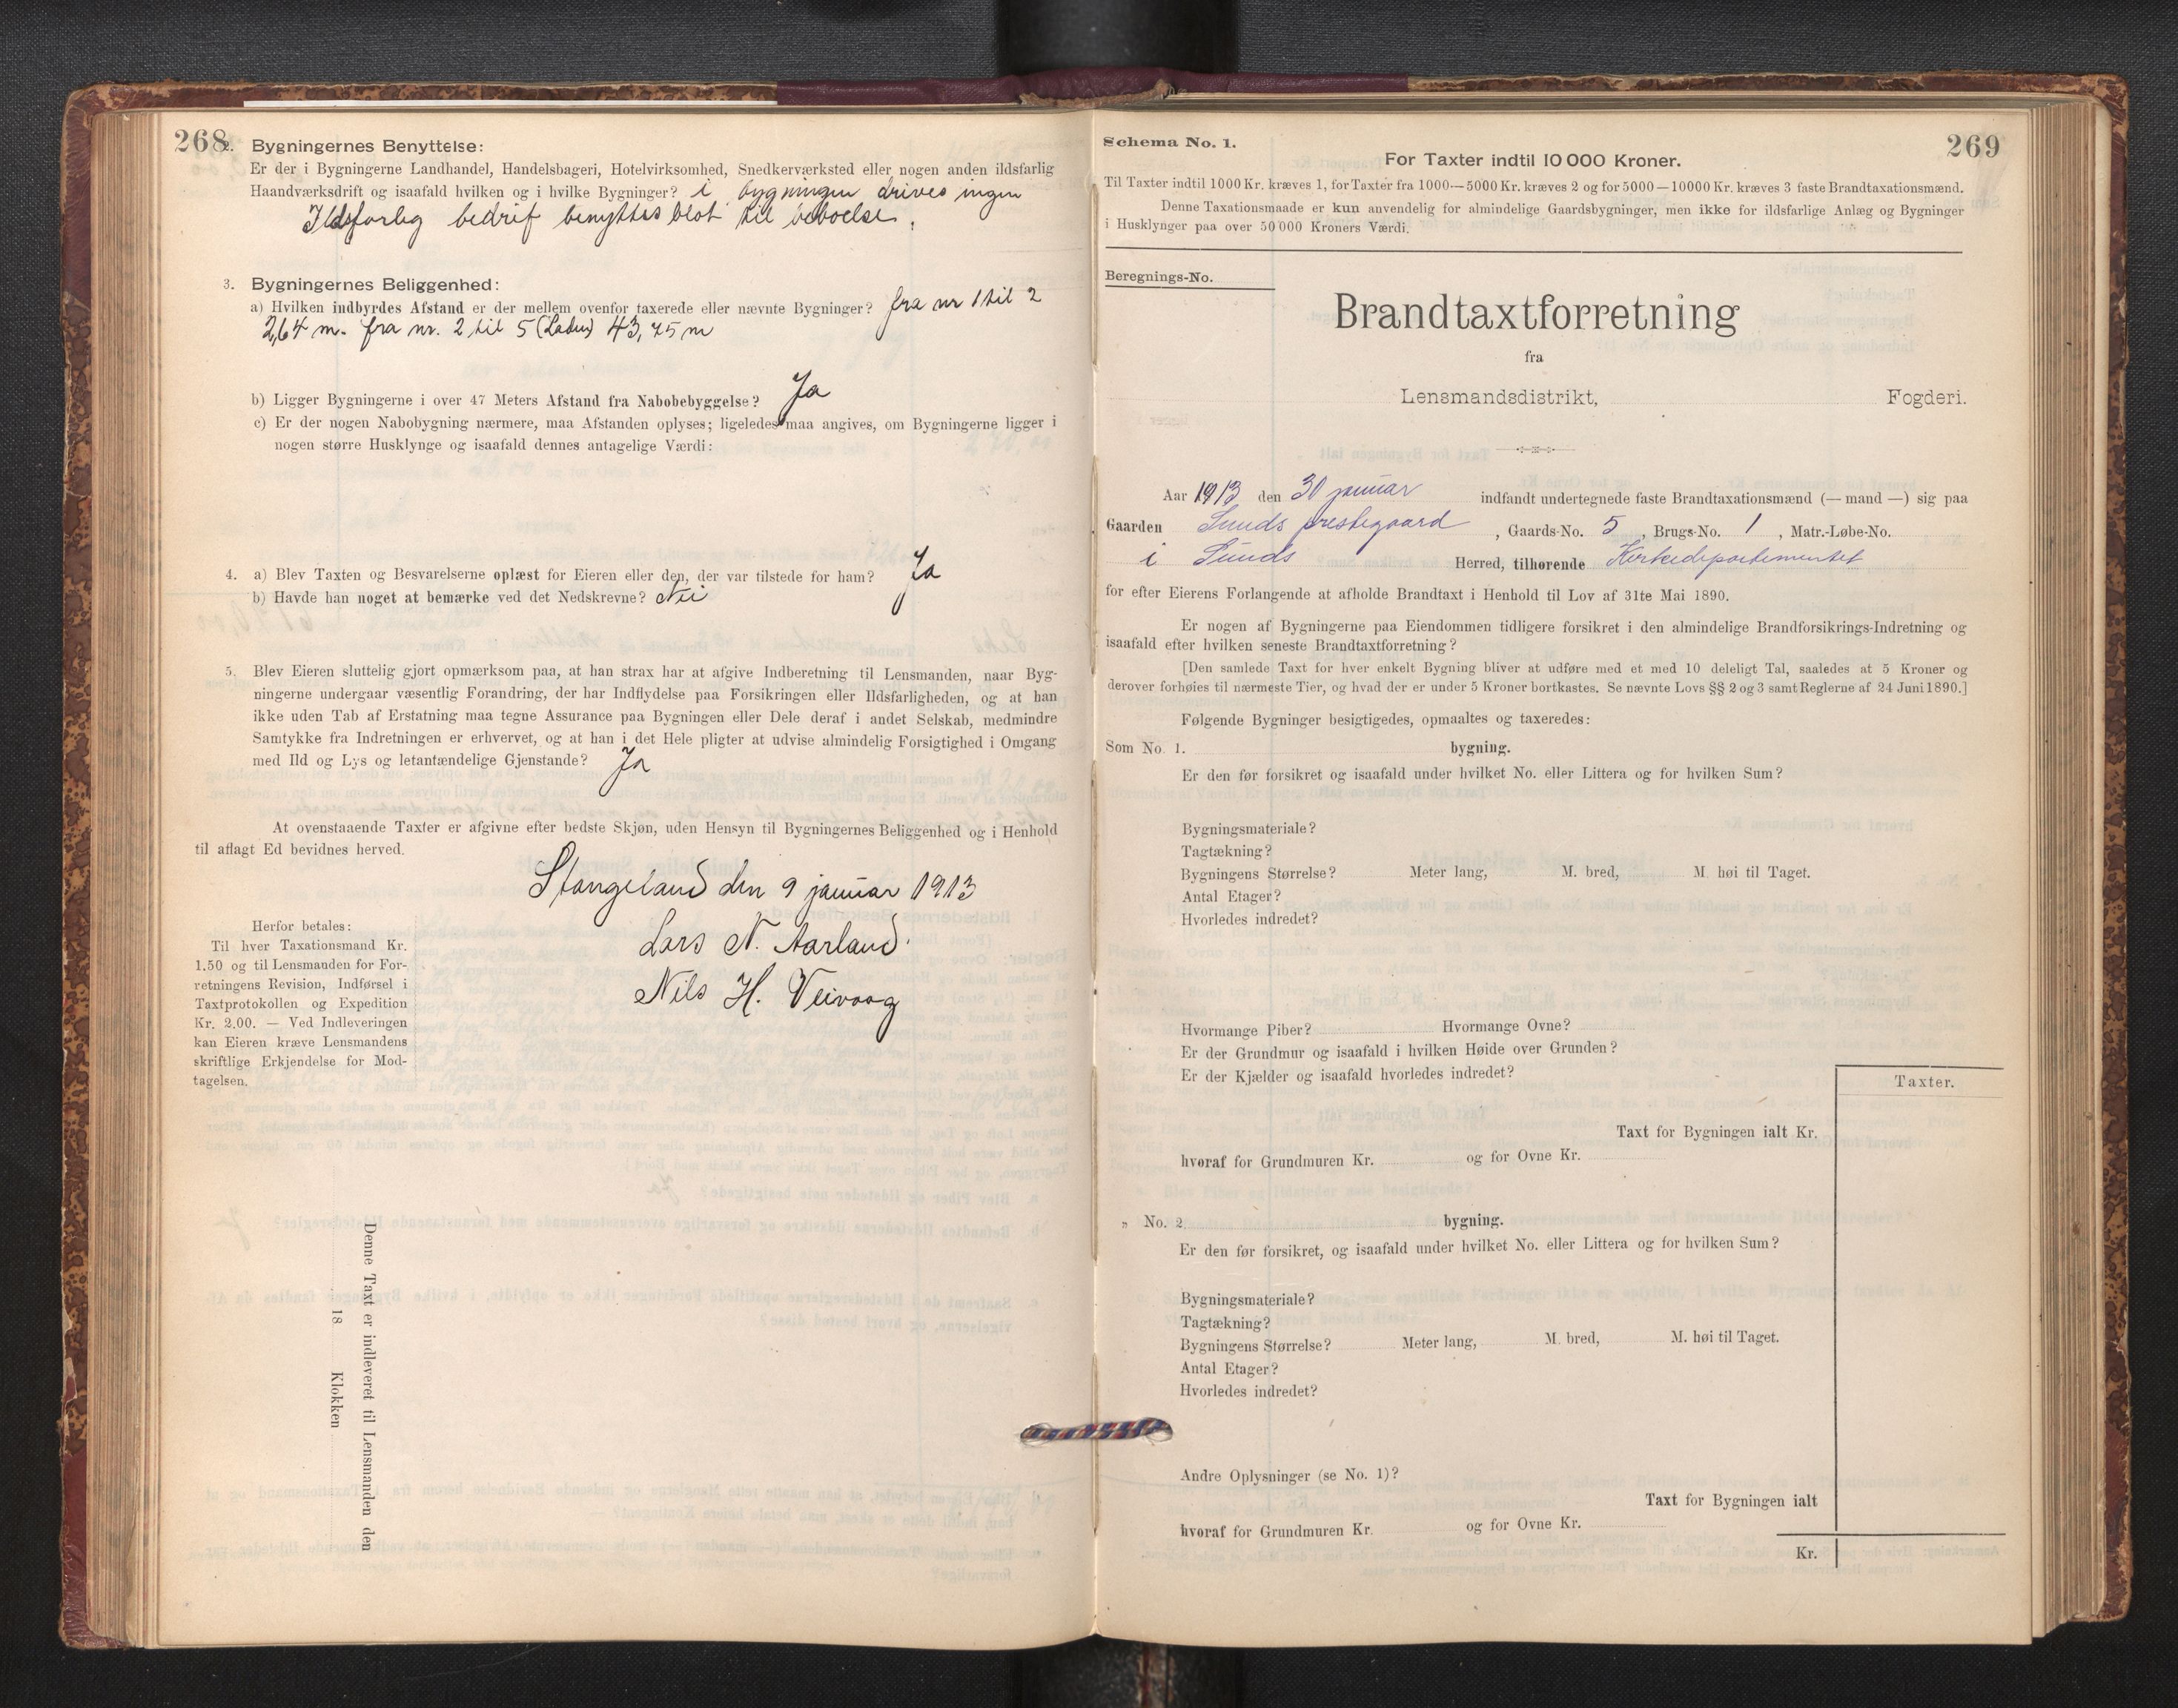 268
2. Bygningernes Benyttelse:
Er der i Bygningerne Landhandel, Handelsbageri, Hotelvirksomhed, Snedkerværksted eller nogen anden ildsfarlig
Haandværksdrift og isaafald hvilken og i hvilke Bygninger? i bygningen drives ingen
Ildsfarlig bedrif benyttes blot til beboelse.
3. Bygningernes Beliggenhed:
a) Hvilken indbyrdes Afstand er der mellem ovenfor taxerede eller nævnte Bygninger? fra nr 1 til 2
2,64 m. fra nr. 2 til 5 (Laden) 43,75 m
b) Ligger Bygningerne i over 47 Meters Afstand fra Nabobebyggelse? Ja
c) Er der nogen Nabobygning nærmere, maa Afstanden oplyses; ligeledes maa angives, om Bygningerne ligger i
nogen større Husklynge og isaafald dennes antagelige Værdi:
4. a) Blev Taxten og Besvarelserne oplæst for Eieren eller den, der var tilstede for ham? Ja
b) Havde han noget at bemærke ved det Nedskrevne? Nei
5. Blev Eieren sluttelig gjort opmærksom paa, at han strax har at afgive Indberetning til Lensmanden, naar Byg-
ningerne undergaar væsentlig Forandring, der har Indflydelse paa Forsikringen eller Ildsfarligheden, og at han
ikke uden Tab af Erstatning maa tegne Assurance paa Bygningen eller Dele deraf i andet Selskab, medmindre
Samtykke fra Indretningen er erhvervet, og at han i det Hele pligter at udvise almindelig Forsigtighed i Omgang
med Ild og Lys og letantændelige Gjenstande? Ja
At ovenstaaende Taxter er afgivne efter bedste Skjøn, uden Hensyn til Bygningernes Beliggenhed og i Henhold
til aflagt Ed bevidnes herved.
Stangeland den 9 januar 1913
Lars N. Aarland.
Nils H. Veivaag
Herfor betales:
Til hver Taxationsmand Kr.
1.50 og til Lensmanden for For-
retningens Revision, Indførsel i
Taxtprotokollen og Expedition
Kr. 2.00. — Ved Indleveringen
kan Eieren kræve Lensmandens
skriftlige Erkjendelse for Mod-
tagelsen.
Denne Taxt er indleveret til Lensmanden den
18 Klokken
Schema No. 1.
269
For Taxter indtil 10 000 Kroner.
Til Taxter indtil 1000 Kr. kræves 1, for Taxter fra 1000—5000 Kr. kræves 2 og for 5000—10000 Kr. kræves 3 faste Brandtaxationsmænd.
Denne Taxationsmaade er kun anvendelig for almindelige Gaardsbygninger, men ikke for ildsfarlige Anlæg og Bygninger
i Husklynger paa over 50 000 Kroners Værdi.
Beregnings-No.
Brandtaxtforretning
fra
Lensmandsdistrikt, Fogderi.
Aar 1913 den 30 januar indfandt undertegnede faste Brandtaxationsmænd (— mand —) sig paa
Gaarden Sunds prestegaard, Gaards-No. 5, Brugs-No. 1, Matr.-Løbe-No.
i Sunds Herred, tilhørende Kirkedepartementet
for efter Eierens Forlangende at afholde Brandtaxt i Henhold til Lov af 31te Mai 1890.
Er nogen af Bygningerne paa Eiendommen tidligere forsikret i den almindelige Brandforsikrings-Indretning og
isaafald efter hvilken seneste Brandtaxtforretning?
[Den samlede Taxt for hver enkelt Bygning bliver at udføre med et med 10 deleligt Tal, saaledes at 5 Kroner og
derover forhøies til nærmeste Tier, og hvad der er under 5 Kroner bortkastes. Se nævnte Lovs §§ 2 og 3 samt Reglerne af 24 Juni 1890.]
Følgende Bygninger besigtigedes, opmaaltes og taxeredes:
Som No. 1. bygning.
Er den før forsikret og isaafald under hvilket No. eller Littera og for hvilken Sum?
Bygningsmateriale?
Tagtækning?
Bygningens Størrelse? Meter lang, M. bred, M. høi til Taget.
Antal Etager?
Hvorledes indredet?
Hvormange Piber? Hvormange Ovne?
Er der Grundmur og isaafald i hvilken Høide over Grunden?
Er der Kjælder og isaafald hvorledes indredet?
Taxter.
Taxt for Bygningen ialt Kr.
hvoraf for Grundmuren Kr. og for Ovne Kr.
„ No. 2. bygning.
Er den før forsikret, og isaafald under hvilket No. eller Littera og for hvilken Sum?
Bygningsmateriale?
Tagtækning?
Bygningens Størrelse? Meter lang, M. bred, M. høi til Taget.
Antal Etager?
Hvorledes indredet?
Andre Oplysninger (se No. 1)?
Taxt for Bygningen ialt
hvoraf for Grundmuren Kr. og for Ovne Kr.
Kr.